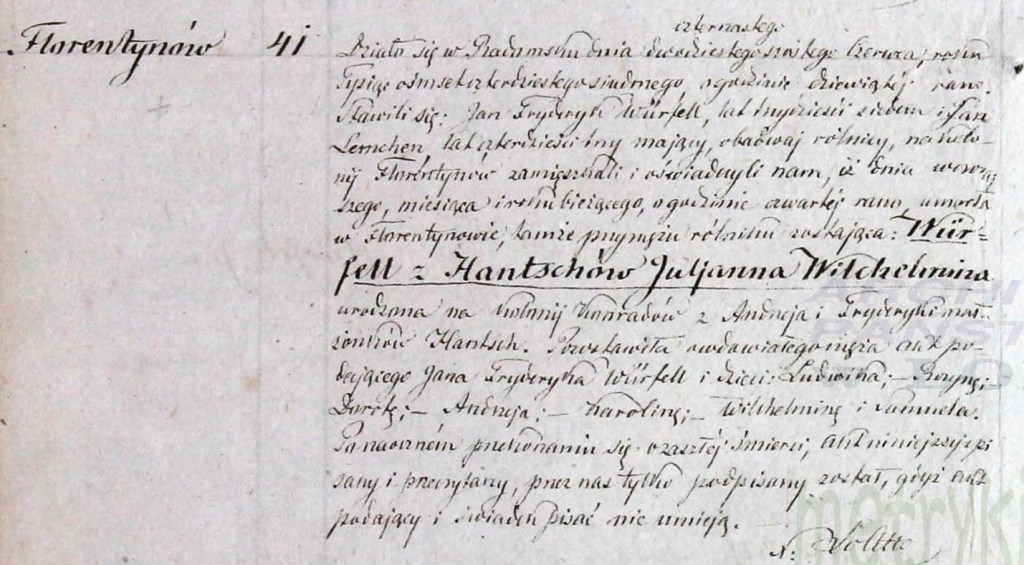 czternastego
Florentynów 41 Działo się w Radomsku dnia dwudziestego szóstego Czerwca, roku
Tysiąc ośmset czterdziestego siódmego, o godzinie dziewiątéj rano.
Stawili się: Jan Fryderyk Würfell, lat trzydzieści siedem i Jan
Lemchen lat czterdzieści trzy mający, obadwaj rólnicy, na kolo-
nij Florentynów zamięszkali i oświadczyli nam, iż dnia wczoraj
szego, miesiąca i roku bieżącego, o godzinie czwartéj rano, umarła
w Florentynowie, tamże przy mężu rólniku zostająca: Wür-
fell z Hantschów Juljanna Wilchelmina
urodzona na kolonij Konradów z Andrzeja i Fryderyki mał-
żonków Hantsch. Pozostawiła owdowiałego męża akt po-
dającego Jana Fryderyka Würfell i dzieci: Ludwika; – Rozynę;
Dorotę; – Andrzeja; – Karolinę; – Wilchelminę i Samuela.
Po naoczném przekonaniu się o zaszłéj śmierci, Akt niniejszy spi
sany i przeczytany, przez nas tylko podpisany został, gdyż akt
podający i świadek pisać nie umieją.